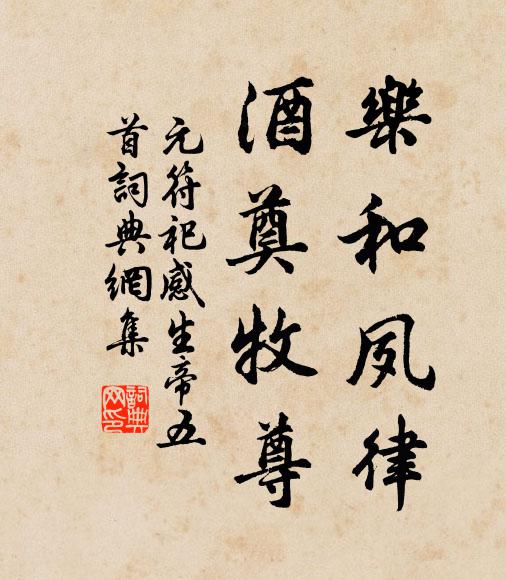 樂和夙律
酒奠牧尊
元符祀感生帝五
首詞典網集
詞典
网印